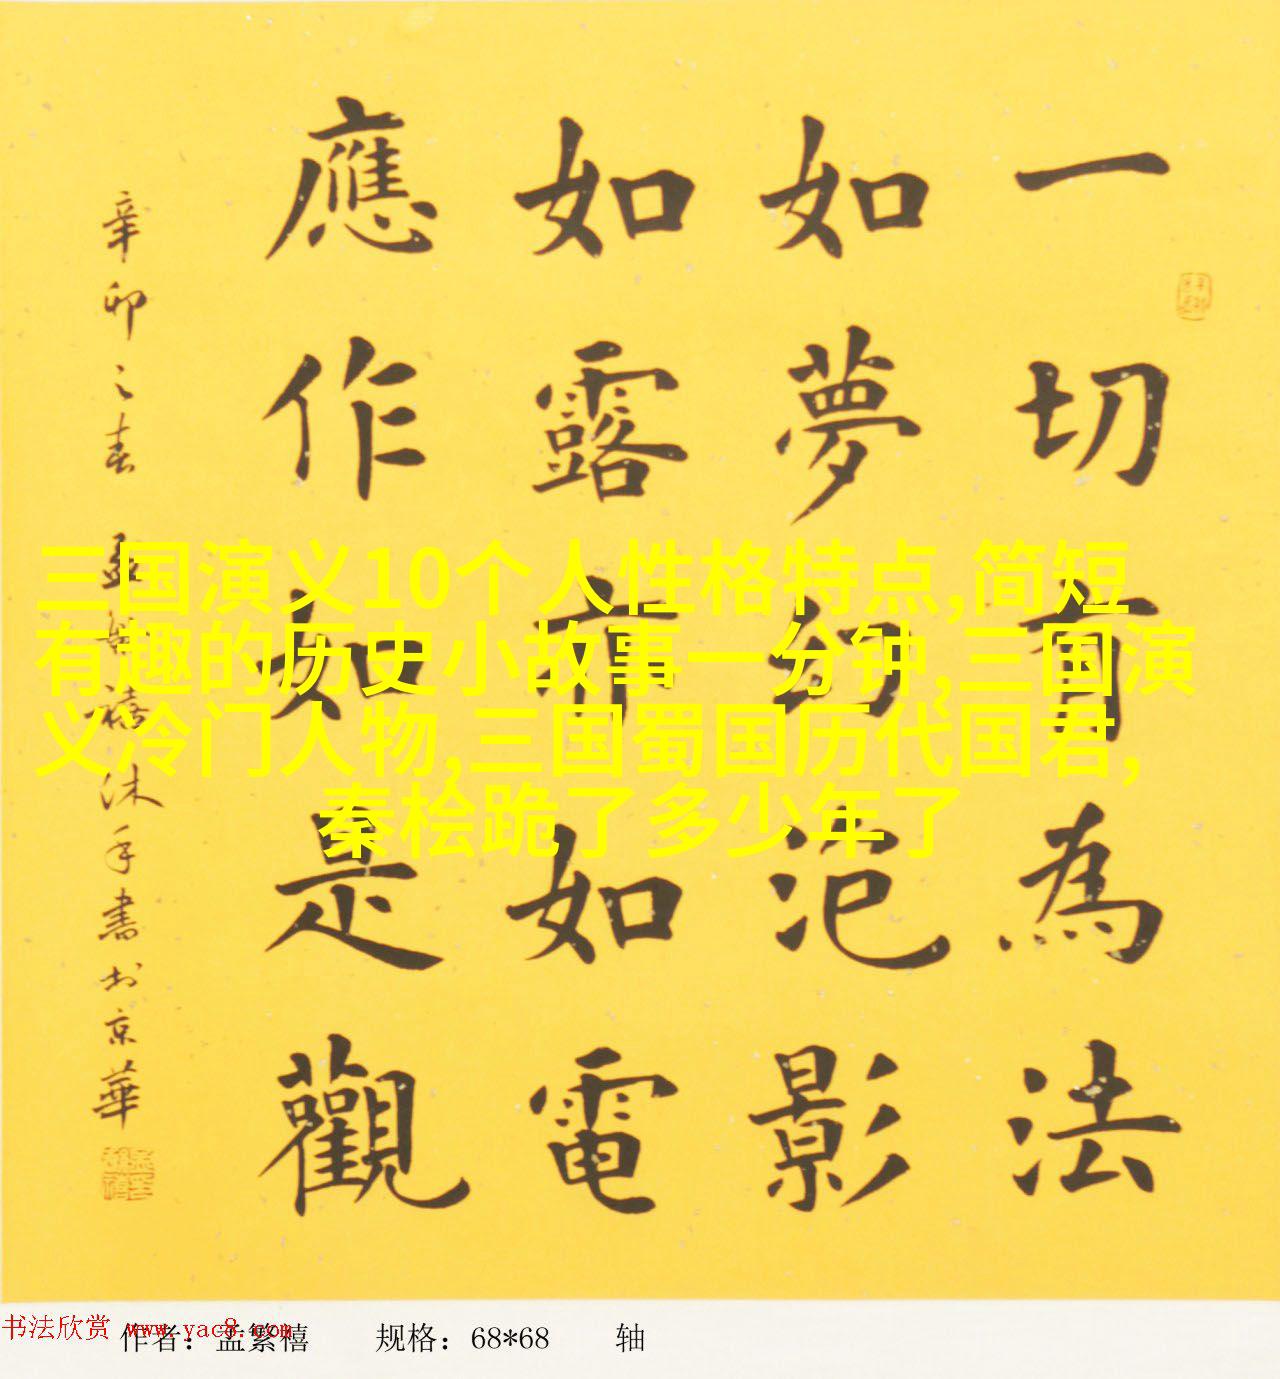 一切有為法
如夢幻泡影
如露亦如電
應作如是觀
辛卯之春孟繁禧沐手書於京華
三国演义10个人性格特点,简短
有趣的历史小故事一分钟,三国演
义冷门人物,三国蜀国历代国君,
秦桧跪了多少年了
书法欣赏 www.yac8.com
作者：孟繁禧 规格：68*68 轴